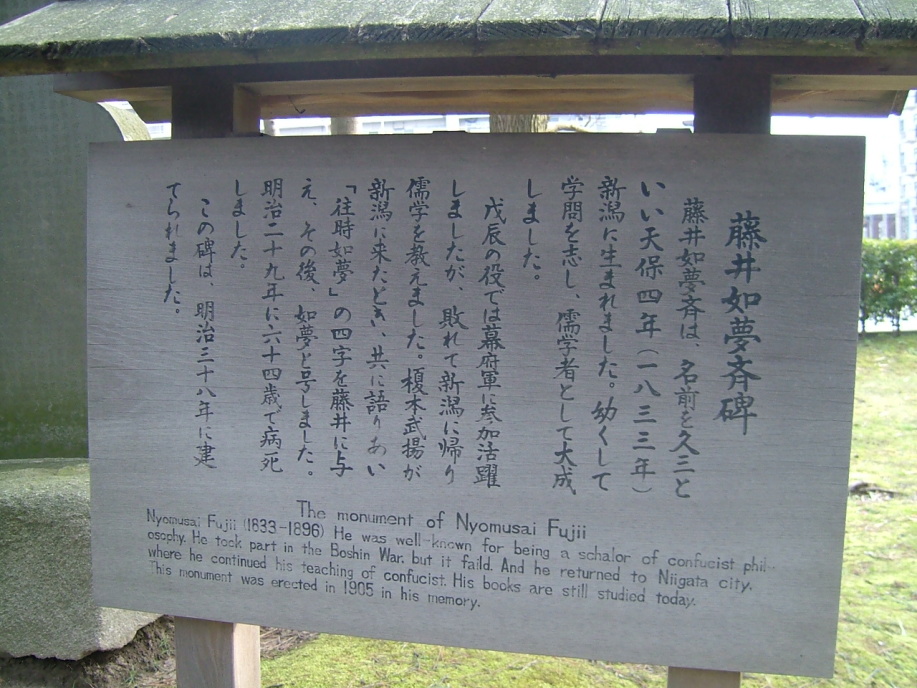 藤井如夢斉碑
藤井如夢斉は、名前を久三と
いい天保四年（一八三三年）
新潟に生まれました。幼くして
学問を志し、儒学者として大成
しました。
戊辰の役では幕府軍に参加活躍
しましたが、敗れて新潟に帰り
儒学を教えました。榎本武揚が
新潟に来たとき、共に語りあい
「往時如夢」の四字を藤井に与
え、その後、如夢と号しました。
明治二十九年に六十四歳で病死
しました。
この碑は、明治三十八年に建
てられました。
The monument of Nyomusai Fujii
Nyomusai Fujii (1833-1896) He was well-known for being a schalor of confucist phil-
osophy. He took part in the Boshin War, but it faild. And he returned to Niigata city.
where he continued his teaching of confucist. His books are still studied today.
This monument was erected in 1905 in his memory.